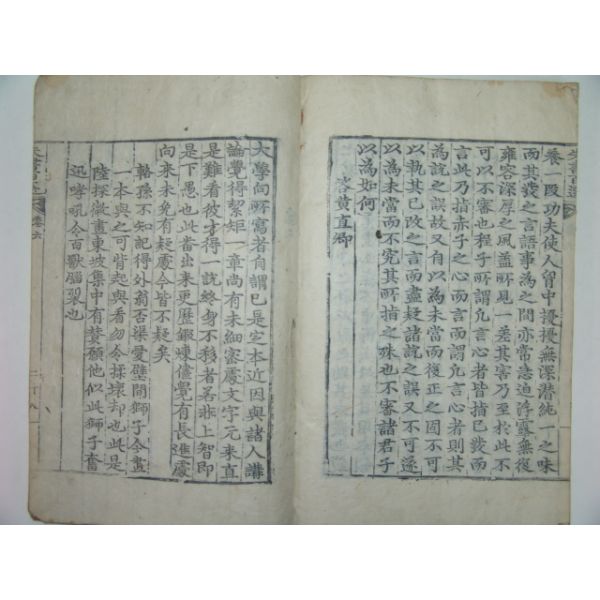 養一段功夫使人胷中擾擾無深潛純一之味
而其發之言語事為之間亦常急迫浮露無復
雍容深厚之風盖所見一差其害乃至於此不
可以不審也程子所謂凡言心者皆指已發而
言此乃指赤子之心而言而謂凡言心者則其
為說之誤故又自以為未當而復正之固不可
以執其已改之言而盡疑諸說之誤又不可遂
以為未當而不究其所指之殊也不審諸君子
以為如何
答黃直卿
大學向所寫者自謂已是定本近因與諸人講
論覺得絜矩一章尚有未細密處文字元來直
是難看彼才得一說終身不移者若非上智即
是下愚也此番出來更歷鍛煉儘覺有長進處
向來未免有疑處今皆不疑矣
輅孫不知記得外翁否渠愛壁間獅子今畫
一本與之可背起與看勿令揉壞却也此是
陸探微畫東坡集中有贊願他似此獅子奮
迅哮吼令百獸腦裂也
卷六